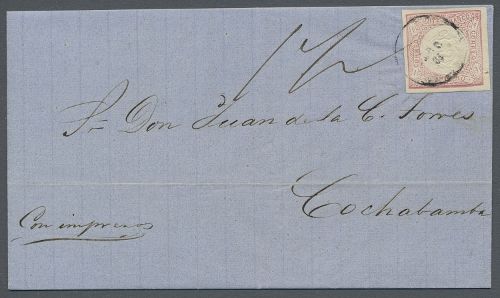 1/2
Sr Don Juan de la C. Torres
Cochabamba
Con impresos